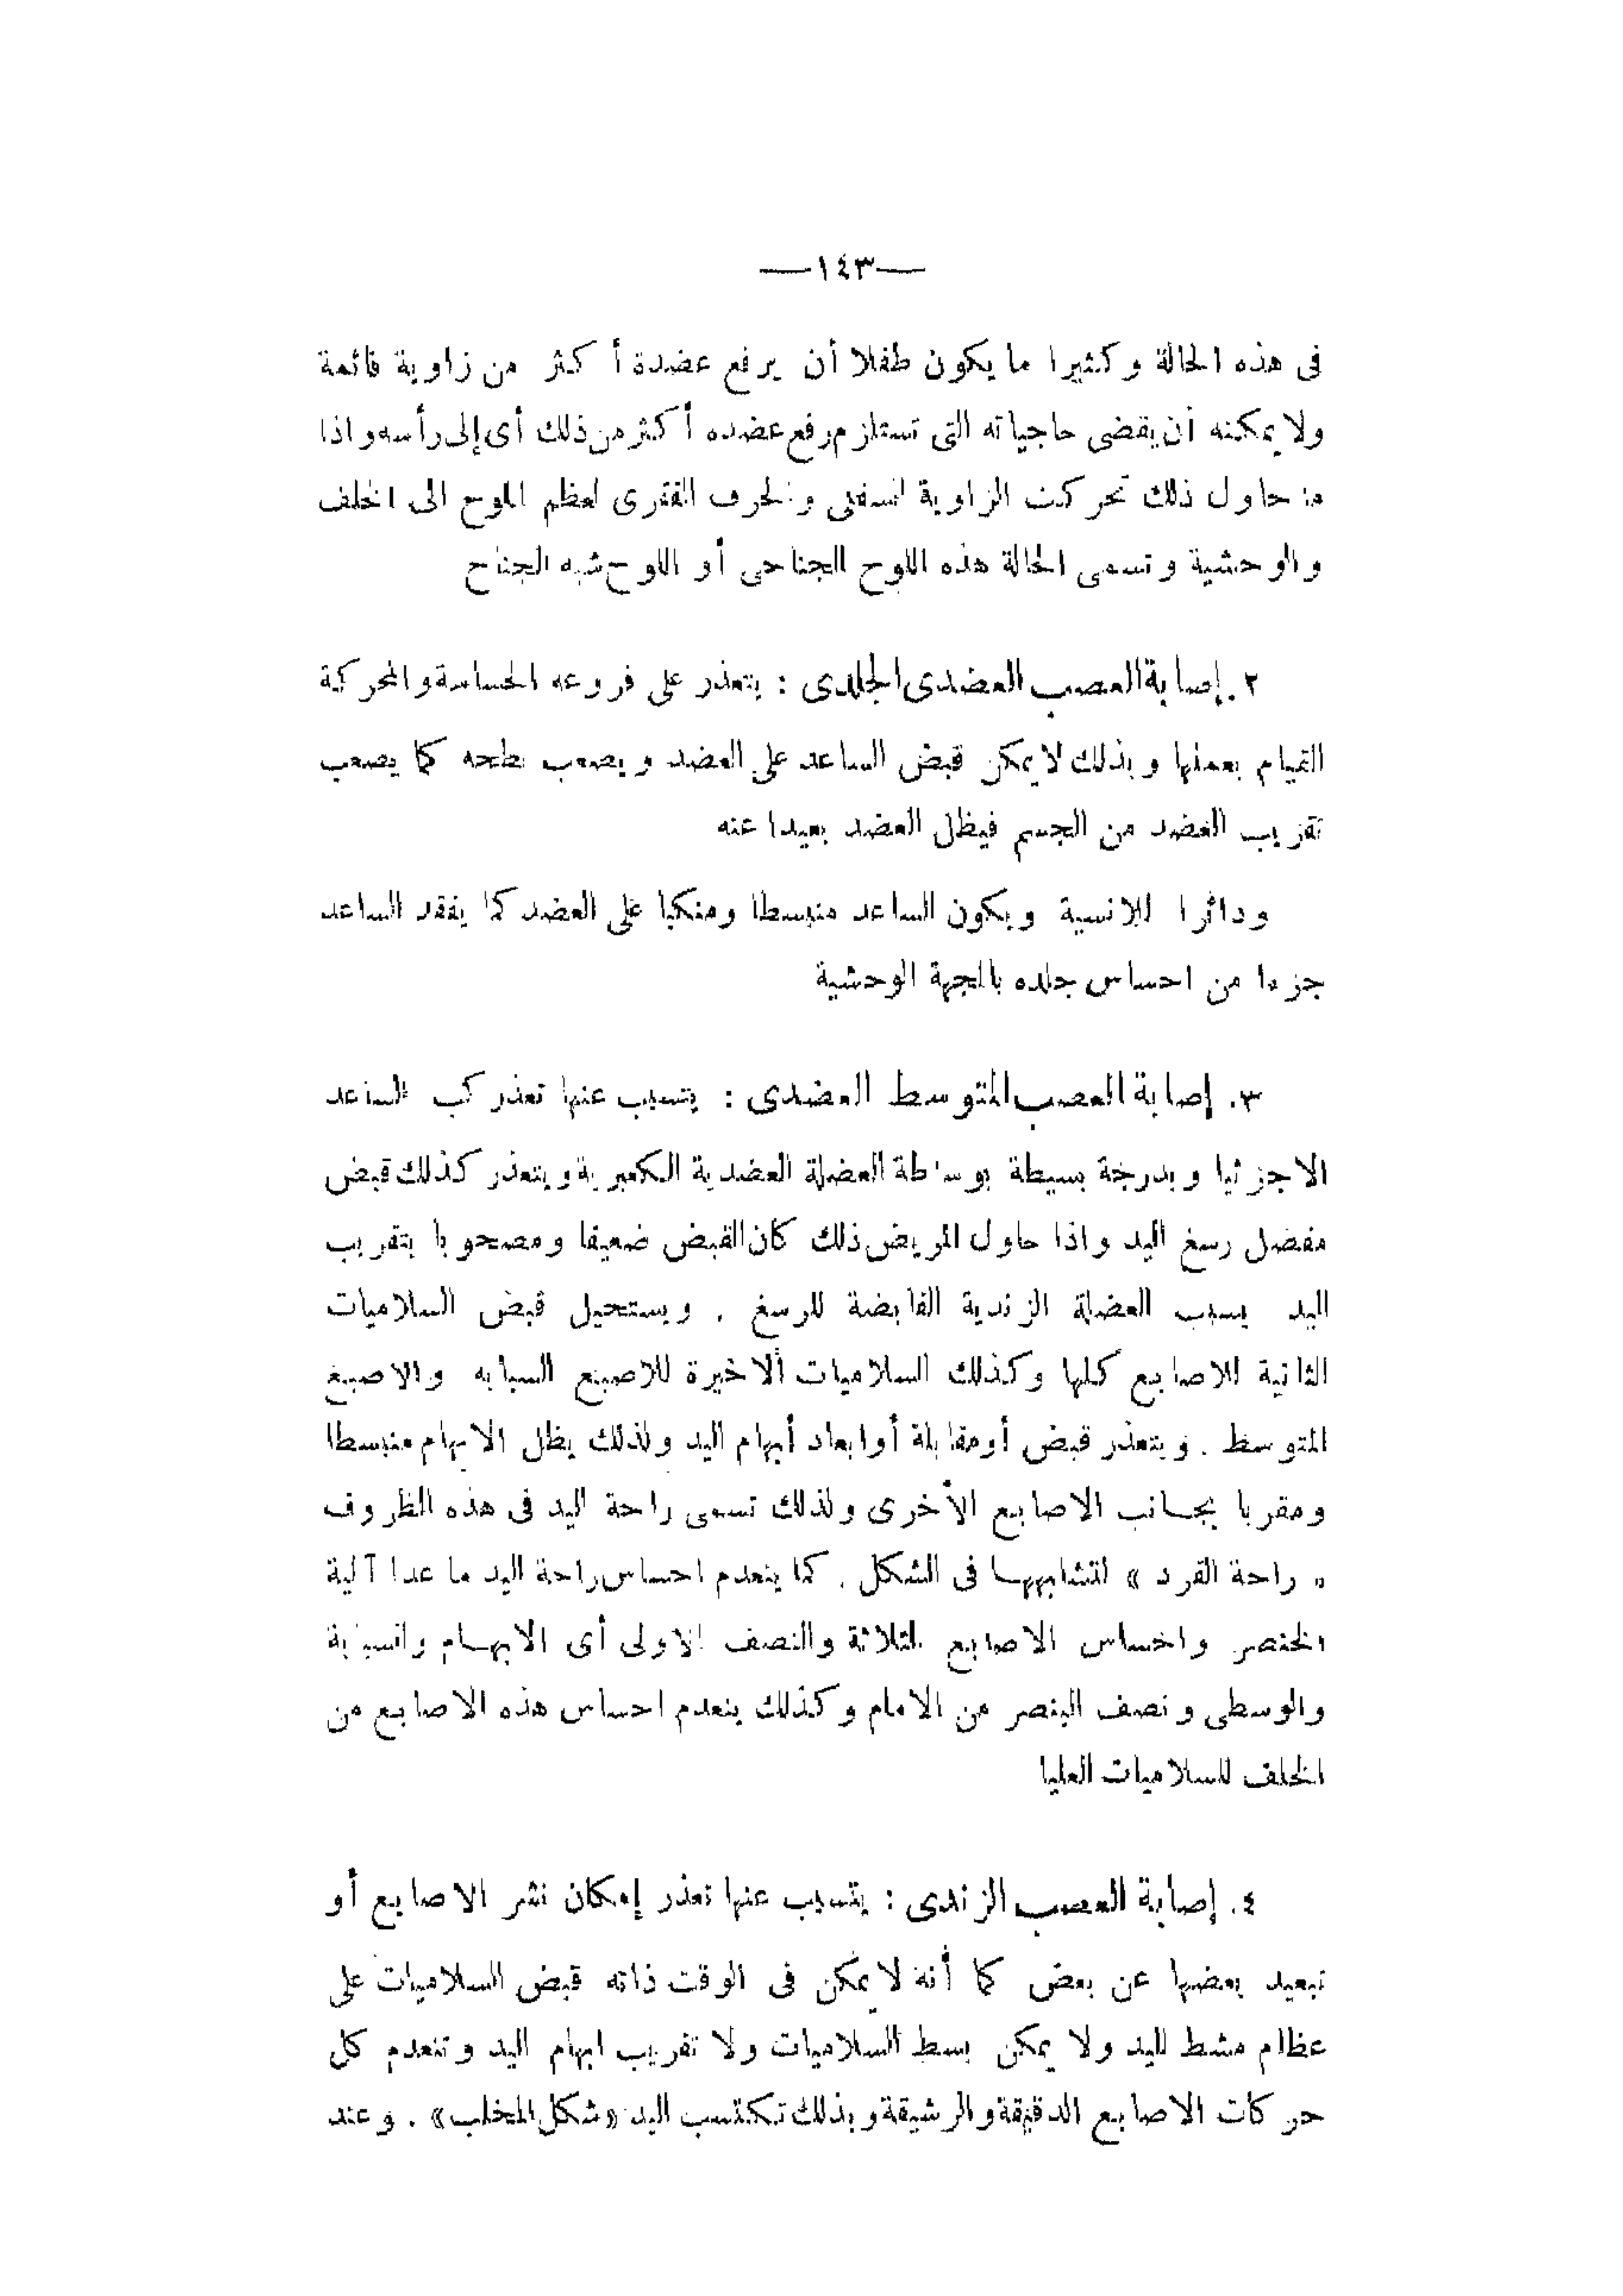 —١٤٣—
فى هذه الحالة وكثيرا ما يكون طفلا أن يرفع عضدة أكثر من زاوية قائمة
ولا يمكنه أن يقضى حاجياته التى تستلزم رفع عضده أكثر من ذلك أى إلى رأسه واذا
ما حاول ذلك تحركت الزاوية السفلى والحرف الفقرى لعظم اللوح الى الخلف
والوحشية وتسمى الحالة هذه اللوح الجناحى أو اللوح شبه الجناح
٢. إصابة العصب العضدى الجلدى : يتعذر على فروعه الحساسة والمحركة
القيام بعملها وبذلك لا يمكن قبض الساعد على العضد ويصعب بطحه كما يصعب
تقريب العضد من الجسم فيظل العضد بعيدا عنه
ودائرا للانسية ويكون الساعد منبسطا ومنكبا على العضد كما يفقد الساعد
جزءا من احساس جلده بالجهة الوحشية
٣. إصابة العصب المتوسط العضدى : يتسبب عنها تعذر كب الساعد
الاجزئيا وبدرجة بسيطة بوساطة العضلة العضدية الكعبرية ويتعذر كذلك قبض
مفصل رسغ اليد واذا حاول المريض ذلك كان القبض ضعيفا ومصحوبا بتقريب
اليد بسبب العضلة الزندية القابضة للرسغ . ويستحيل قبض السلاميات
الثانية للاصابع كلها وكذلك السلاميات ألاخيرة للاصبع السبابه والاصبع
المتوسط . ويتعذر قبض أو مقابلة أو ابعاد أبهام اليد ولذلك يظل الابهام منبسطا
ومقربا بجانب الاصابع الأخرى ولذلك تسمى راحة اليد فى هذه الظروف
« راحة القرد » لتشابهها فى الشكل . كما ينعدم احساس راحة اليد ما عدا آلية
الخنصر واحساس الاصابع الثلاثة والنصف الاولى أى الابهام والسبابة
والوسطى ونصف البنصر من الامام وكذلك ينعدم احساس هذه الاصابع من
الخلف للسلاميات العليا
٤. إصابة العصب الزندى : يتسبب عنها تعذر إمكان نشر الاصابع أو
تبعيد بعضها عن بعض كما أنه لا يمكن فى الوقت ذاته قبض السلاميات على
عظام مشط لليد ولا يمكن بسط السلاميات ولا تقريب ابهام اليد وتنعدم كل
حركات الاصابع الدقيقة والرشيقة وبذلك تكتسب اليد «شكل المخلب» . وعند